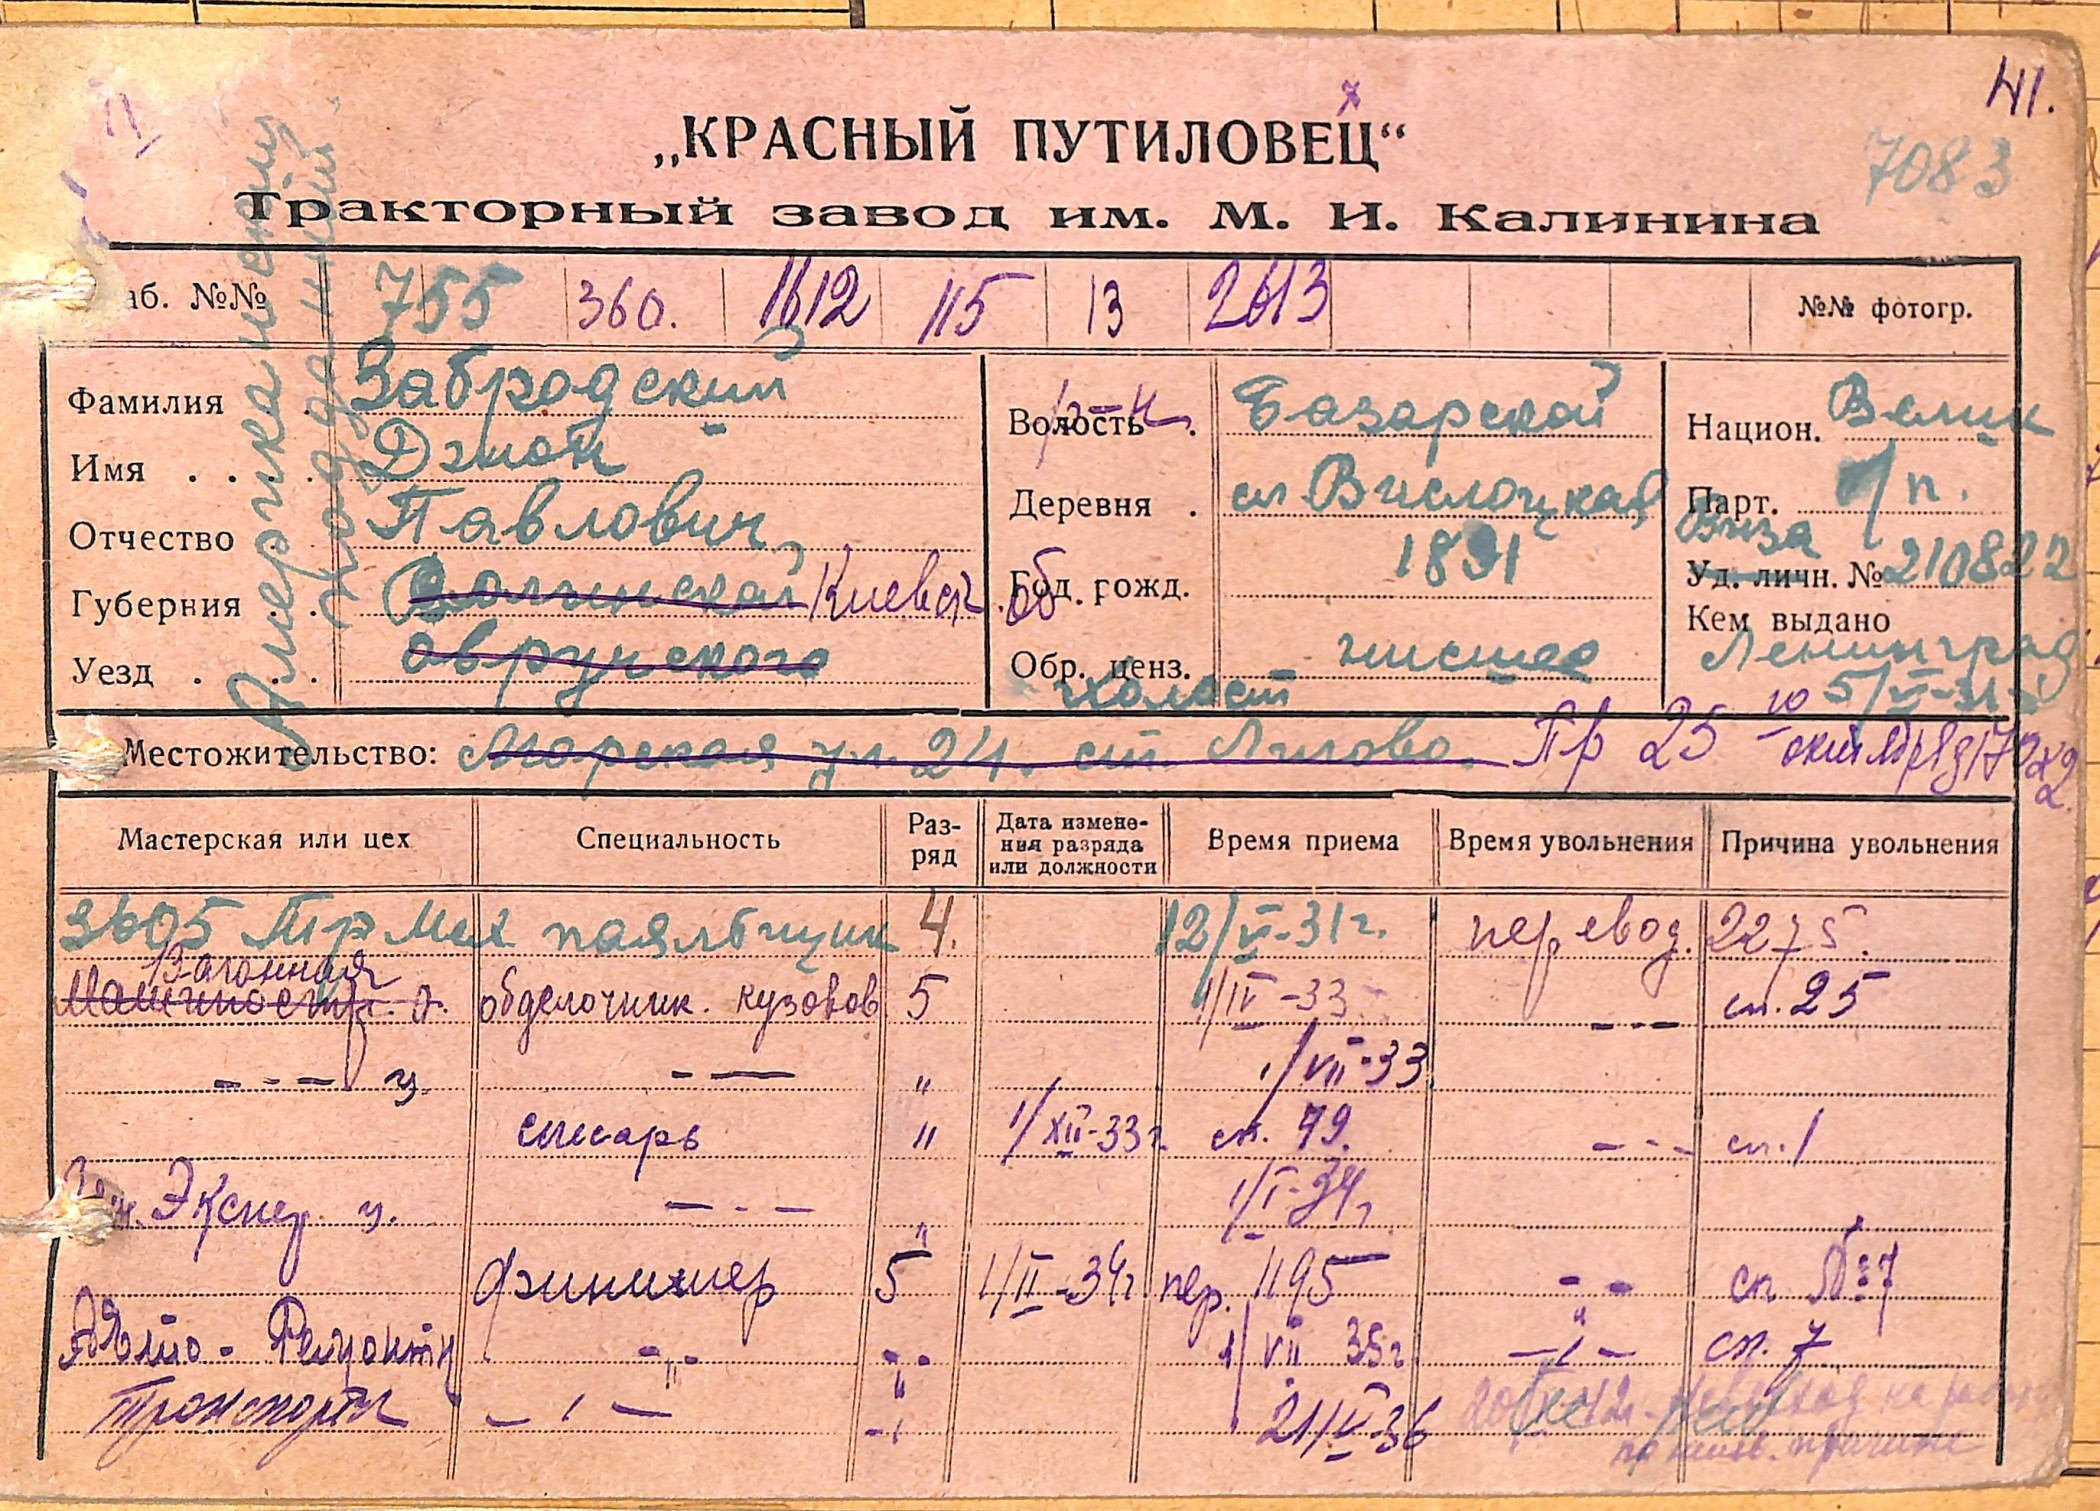 41.
„КРАСНЫЙ ПУТИЛОВЕЦ“
7083
Тракторный завод им. М. И. Калинина
Американский
подданный
аб. №№ 755 360. 1612 115 13 2613 №№ фотогр.
Фамилия Забродский
Имя Джон
Отчество Павлович
Губерния Волынской Киевск. об.
Уезд Овручского
Волость р-н Базарской
Деревня сл
Год рожд. 1891
Обр. ценз. низшее
холост
Национ. Велик
Парт. б/п.
Виза
Уд. личн. № 210822
Кем выдано
Ленинград
5/VI-31 г
Местожительство: Морская ул. 24. ст. Лигово. Пр 25 го октября
Мастерская или цех Специальность Раз-ряд Дата измене-ния разряда или должности Время приема Время увольнения Причина увольнения
3605 Тр Мех паяльщик 4. 12/VI-31г. перевод. 2275.
Вагонная
обделочник. кузовов 5 1/IV-33 --- сп. 25
--- ц. -— " 1/VII-33
слесарь " 1/XII-33г. сп. 79. --- сп. 1
Экспер. ц. —-— " 1/I-34г
финишер 5 1/II-34г пер. 1195 -"- сп №7
Авто-Ремонтн -"- -"- 1/VII 35г. —"— сп. 7
Транспортн —"— -"- 21/V-36 на работу
причине